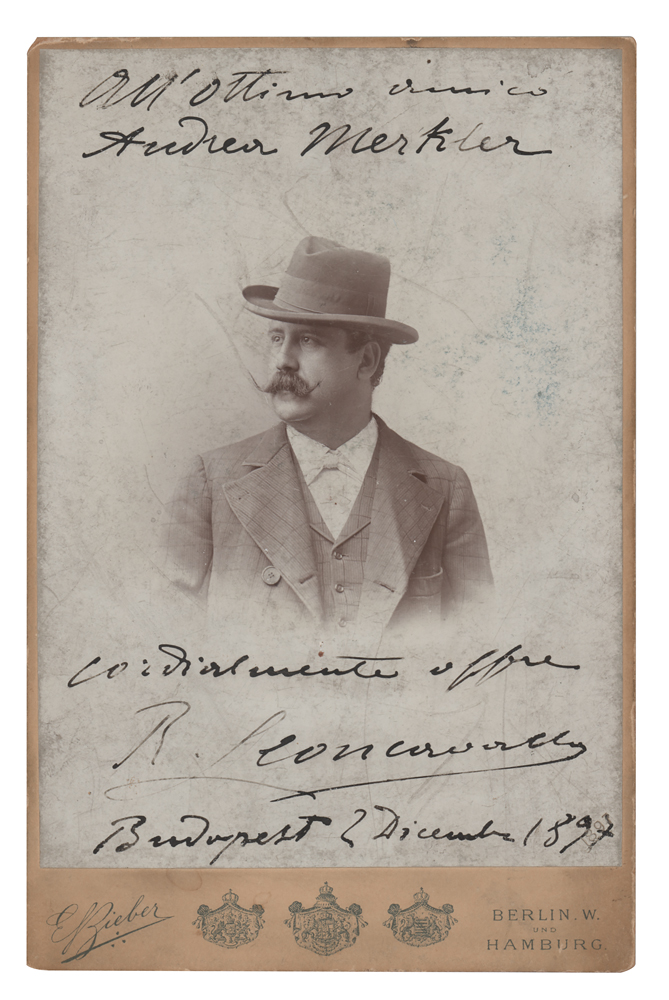 All'ottimo amico
Andrea Merkler
cordialmente offre
R. Leoncavallo
Budapest 2 Dicembre 1897
E. Bieber
BERLIN. W.
UND
HAMBURG.